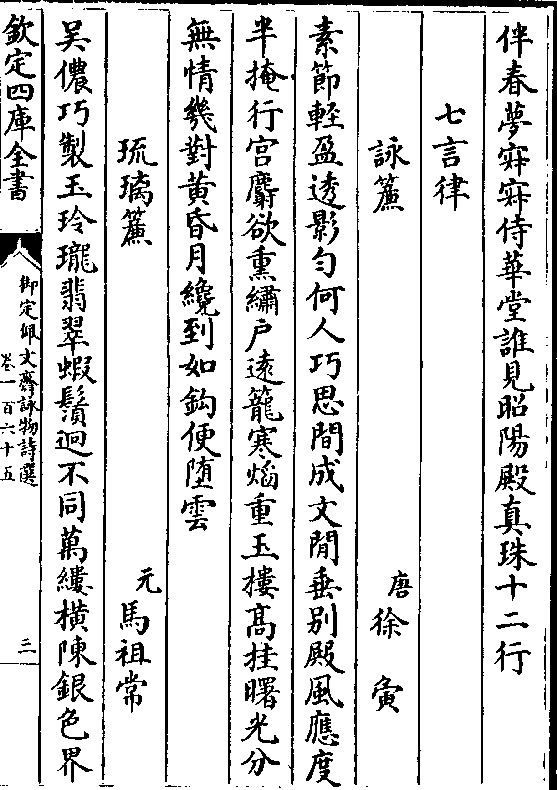 伴春夢寂寂侍華堂誰見昭陽殿真珠十二行
七言律
詠簾 唐 徐夤
素節輕盈透影勻何人巧思間成文閒垂别殿風應度
半掩行宫麝欲熏繡户逺籠寒熖重玉樓髙挂曙光分
無情幾對黄昏月纔到如鈎便堕雲
琉璃簾 元 馬祖常
吴儂巧製玉玲瓏翡翠蝦鬚迥不同萬縷橫陳銀色界
欽定四庫全書
御定佩文齋詠物詩選
卷一百六十五
三